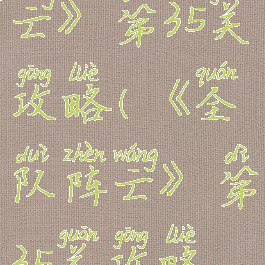 亡》 第35关
gōng lüè quán
攻略( 《全
duì zhèn wáng dì
队阵亡》 第
guān gōng lüè
35关攻略